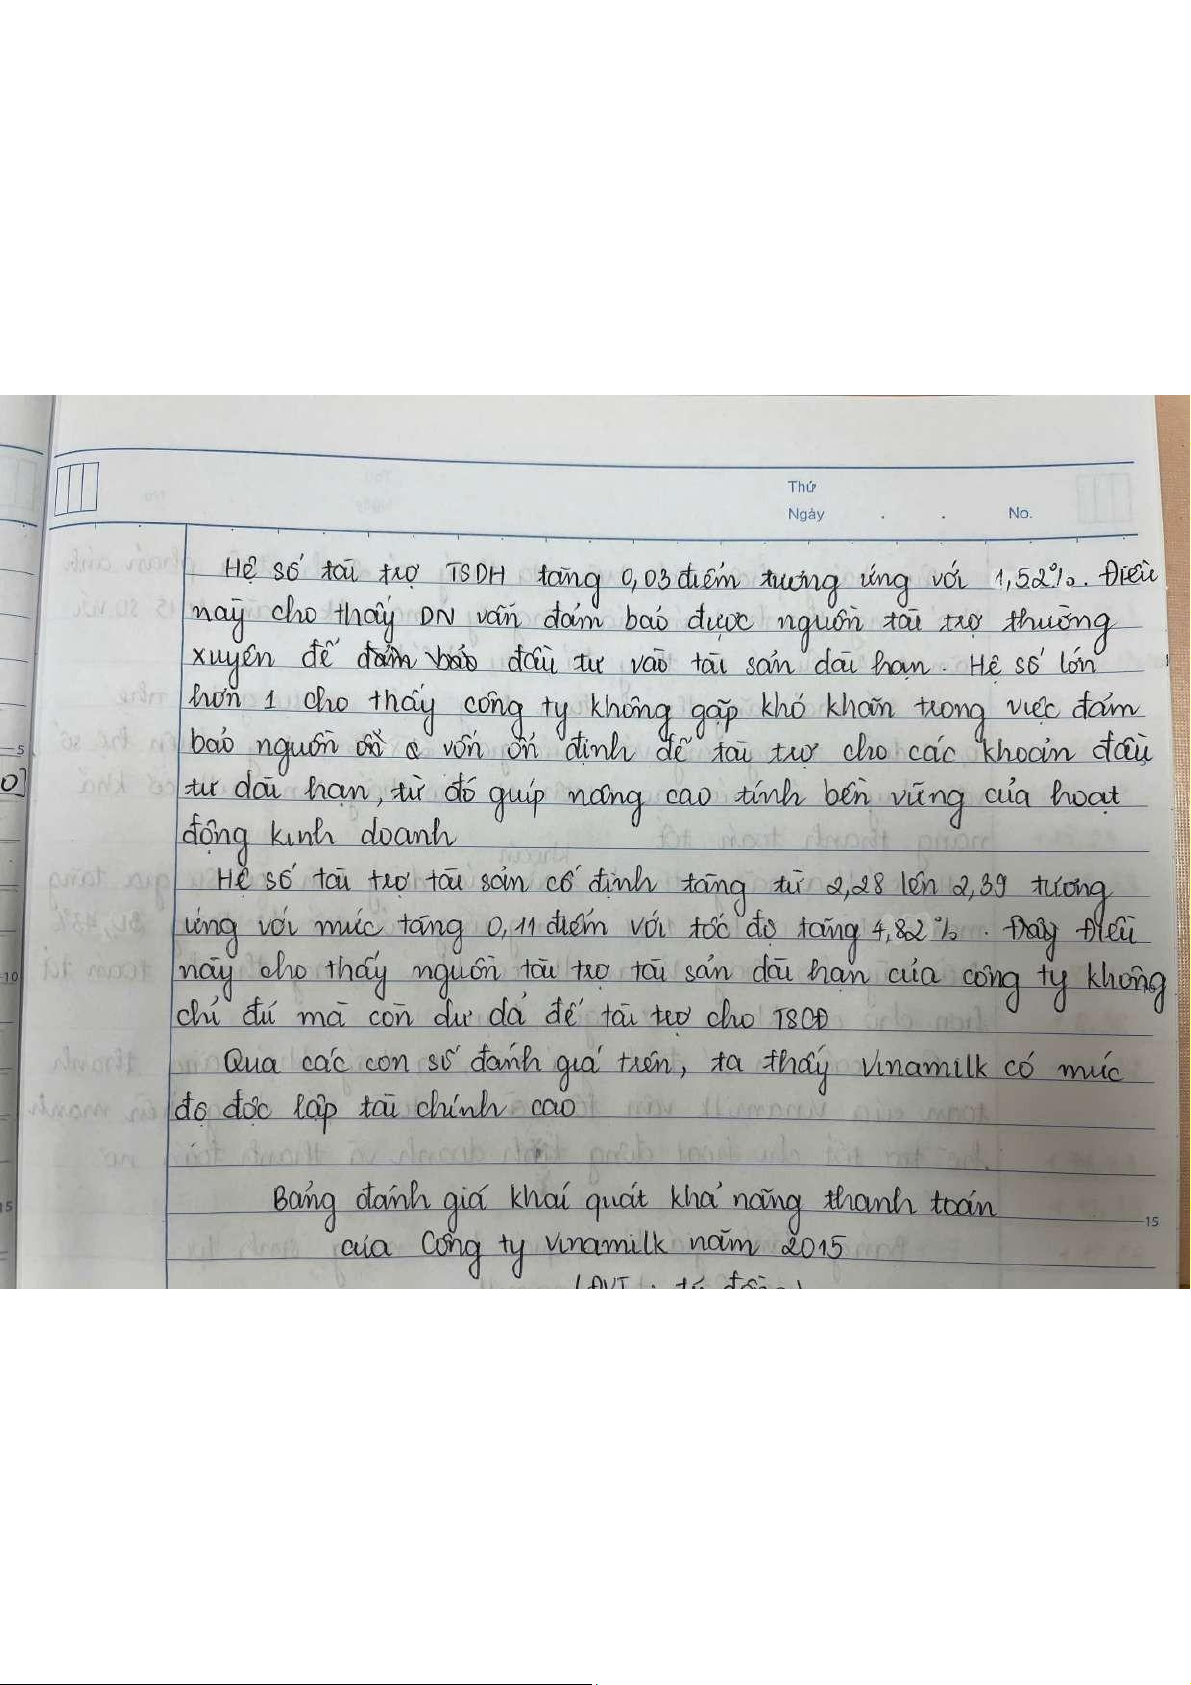 Thứ
Ngày . . No.
Hệ số tài trợ TSDH tăng 0,03 điểm tương ứng với 1,52%. Điều
này cho thấy DN vẫn đảm bảo được nguồn tài trợ thường
xuyên để đảm bảo đầu tư vào tài sản dài hạn. Hệ số lớn
hơn 1 cho thấy công ty không gặp khó khăn trong việc đảm
bảo nguồn vốn ổn định để tài trợ cho các khoản đầu
5
0]
tư dài hạn, từ đó giúp nâng cao tính bền vững của hoạt
động kinh doanh
Hệ số tài trợ tài sản cố định tăng từ 2,28 lên 2,39 tương
ứng với mức tăng 0,11 điểm với tốc độ tăng 4,82%. Điều
này cho thấy nguồn tài trợ tài sản dài hạn của công ty không
10
chỉ đủ mà còn dư dả để tài trợ cho TSCĐ
Qua các con số đánh giá trên, ta thấy Vinamilk có mức
độ độc lập tài chính cao
Bảng đánh giá khái quát khả năng thanh toán
15
15
của Công ty Vinamilk năm 2015